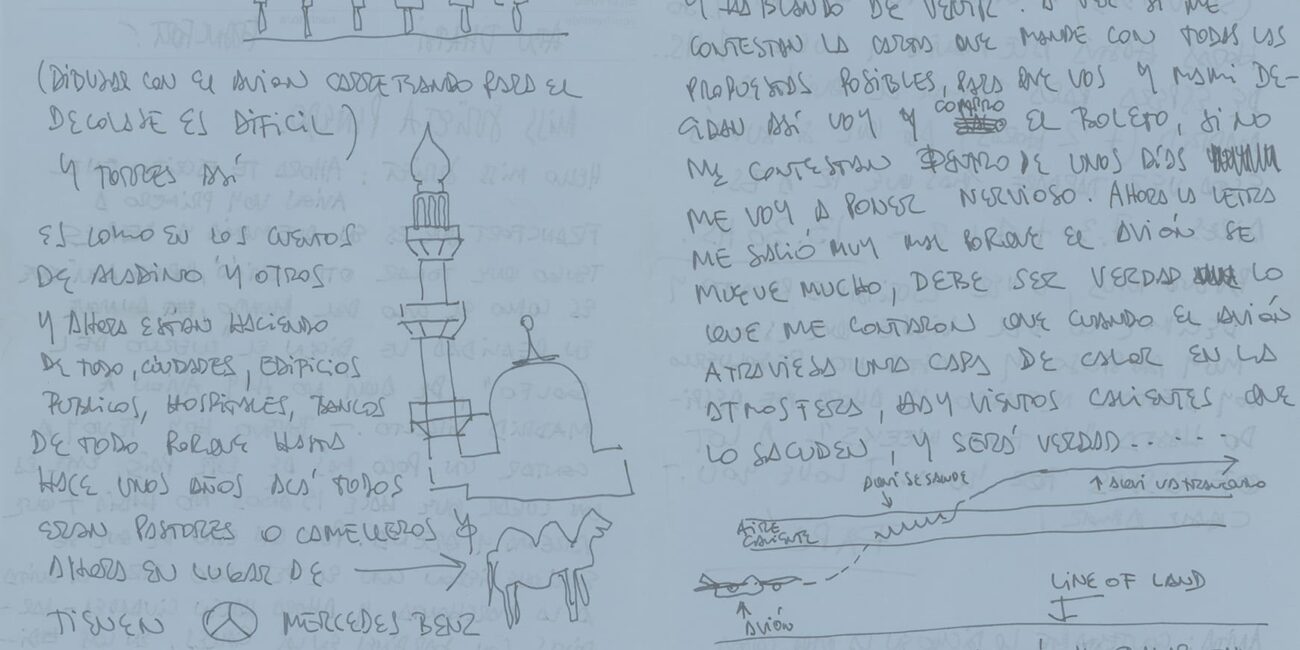 (DIBUJAR CON EL AVION CARRETEANDO PARA EL
DECOLAJE ES DIFICIL)
Y TORRES ASÍ
ES COMO EN LOS CUENTOS
DE ALADINO Y OTROS
Y AHORA ESTÁN HACIENDO
DE TODO, CIUDADES, EDIFICIOS
PUBLICOS, HOSPITALES, BANCOS
DE TODO PORQUE HASTA
HACE UNOS AÑOS ACÁ TODOS
ERAN PASTORES O CAMELLEROS Y
AHORA EN LUGAR DE
TIENEN MERCEDES BENZ
Y TABLEANDO DE VENIR. A VER SI ME
CONTESTAN LA CARTA QUE MANDE CON TODAS LAS
PROPUESTAS POSIBLES, PARA QUE VOS Y MAMI DE-
CIDAN ASÍ VOY Y COMPRO EL BOLETO, SI NO
ME CONTESTAN DENTRO DE UNOS DÍAS
ME VOY A PONER NERVIOSO. AHORA LA LETRA
ME SALIÓ MUY MAL PORQUE EL AVIÓN SE
MUEVE MUCHO, DEBE SER VERDAD LO
QUE ME CONTARON QUE CUANDO EL AVIÓN
ATRAVIESA UNA CAPA DE CALOR EN LA
ATMOSFERA, HAY VIENTOS CALIENTES QUE
LO SACUDEN, Y SERÁ VERDAD......
AVIÓN SE SACUDE
AVIÓN VA TRANQUILO
AIRE
CALIENTE
LINE OF LAND
AVIÓN